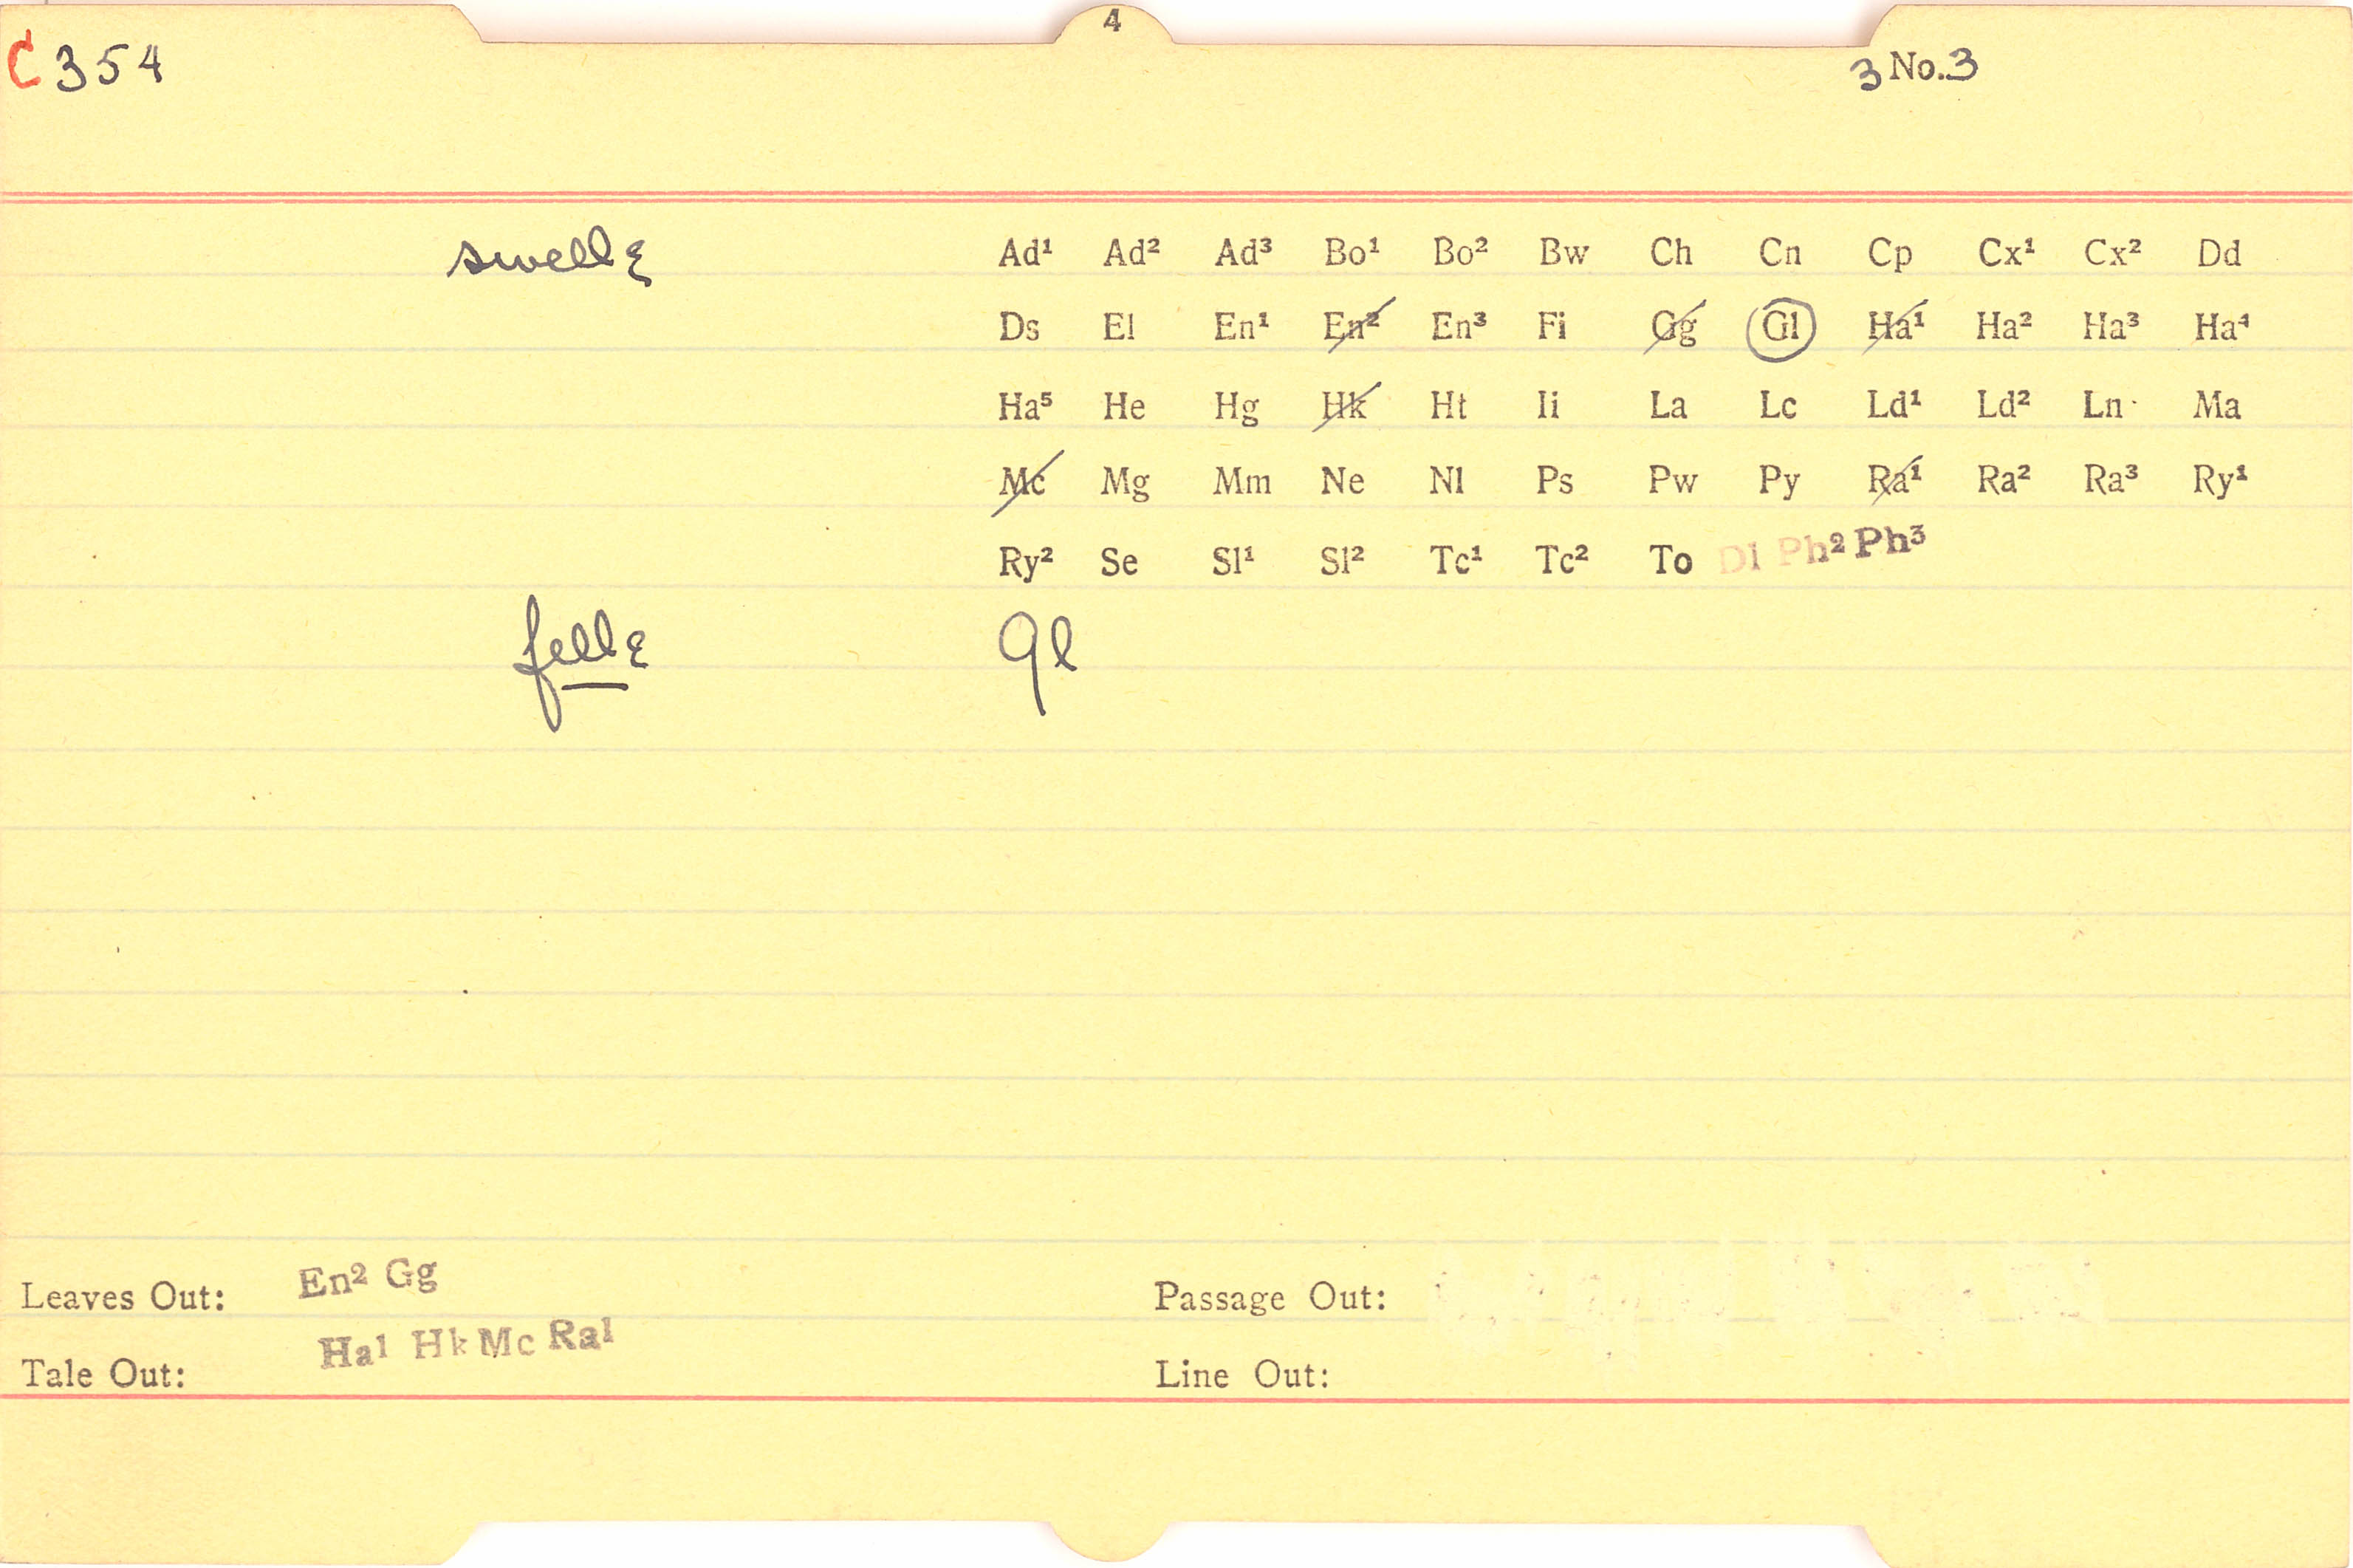 4
C 354
3 No. 3
swelle Ad¹ Ad² Ad³ Bo¹ Bo² Bw Ch Cn Cp Cx¹ Cx² Dd
Ds El En¹ En² En³ Fi Gg Gl Ha¹ Ha² Ha³ Ha⁴
Ha⁵ He Hg Hk Ht Ii La Lc Ld¹ Ld² Ln Ma
Mc Mg Mm Ne Nl Ps Pw Py Ra¹ Ra² Ra³ Ry¹
Ry² Se Sl¹ Sl² Tc¹ Tc² To Dl Ph² Ph³
felle Gl
Leaves Out: En² Gg Passage Out:
Tale Out: Ha¹ Hk Mc Ra¹ Line Out: